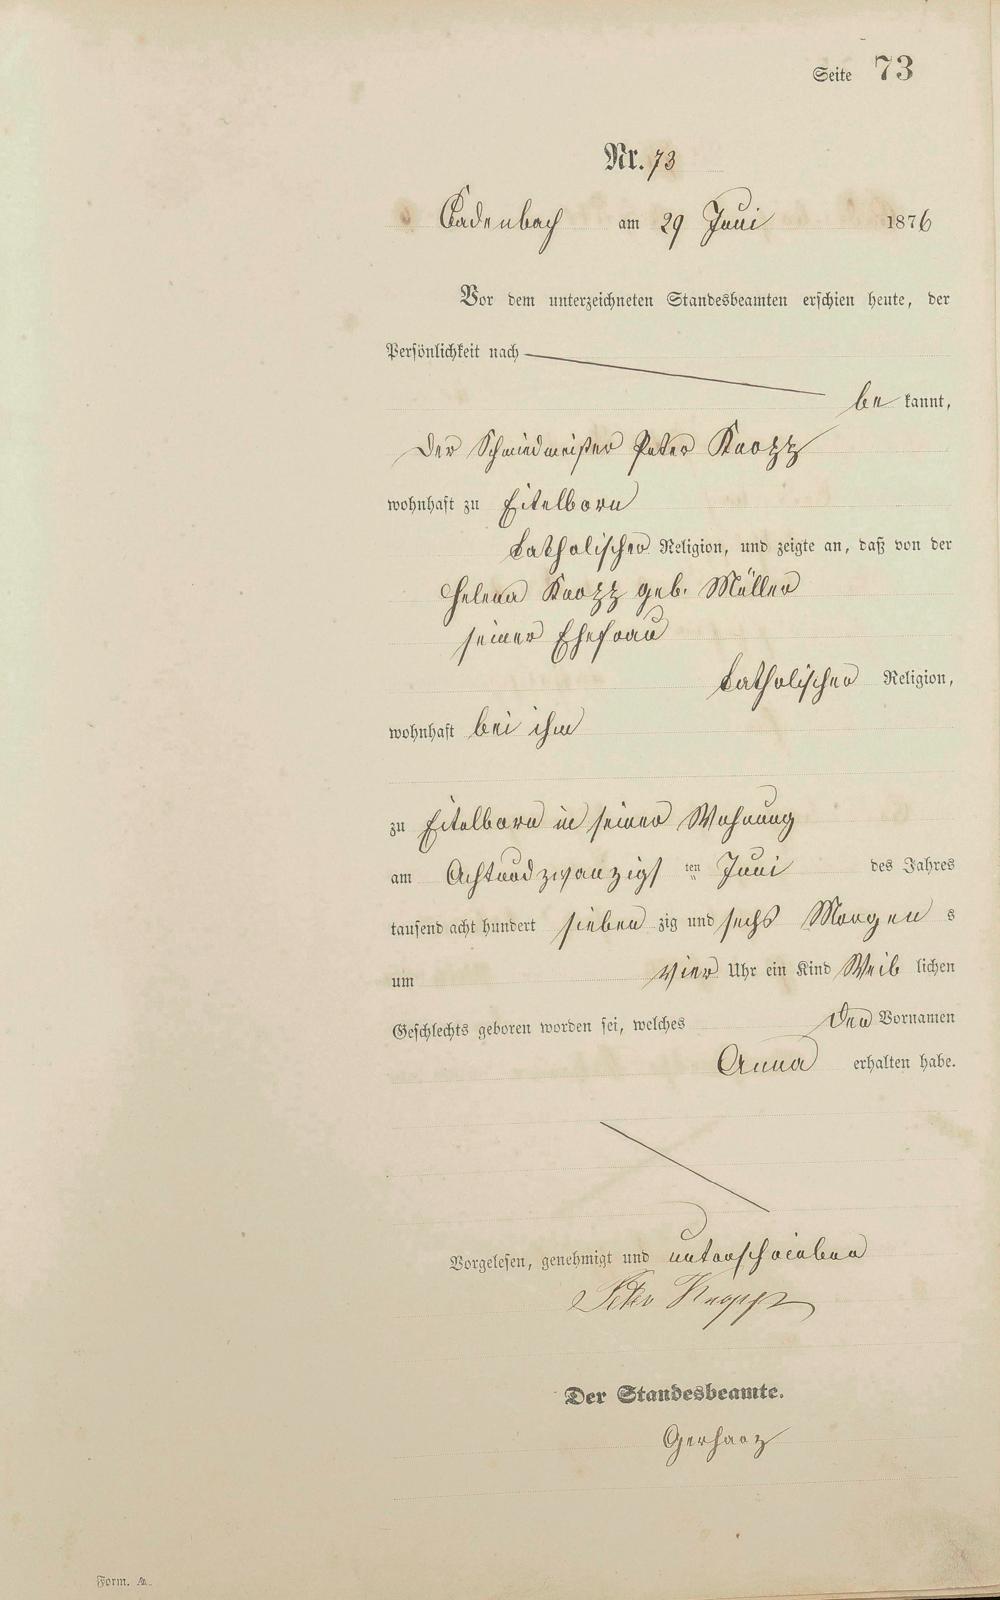 Seite 73
Nr. 73
Cadenbach am 29 Juni 1876
Vor dem unterzeichneten Standesbeamten erschien heute, der
Persönlichkeit nach
be kannt,
der Schmiedmeister Peter Knopp
wohnhaft zu Eitelborn
katholischer Religion, und zeigte an, daß von der
Helena Knopp geb. Müller
seiner Ehefrau
katholischer Religion,
wohnhaft bei ihm
zu Eitelborn in seiner Wohnung
am Achtundzwanzigs ten Juni des Jahres
tausend acht hundert sieben zig und sechs Morgen s
um vier Uhr ein Kind Weib lichen
Geschlechts geboren worden sei, welches den Vornamen
Anna erhalten habe.
Vorgelesen, genehmigt und unterschrieben
Peter Knopp
Der Standesbeamte.
Gerharz
Form. A.